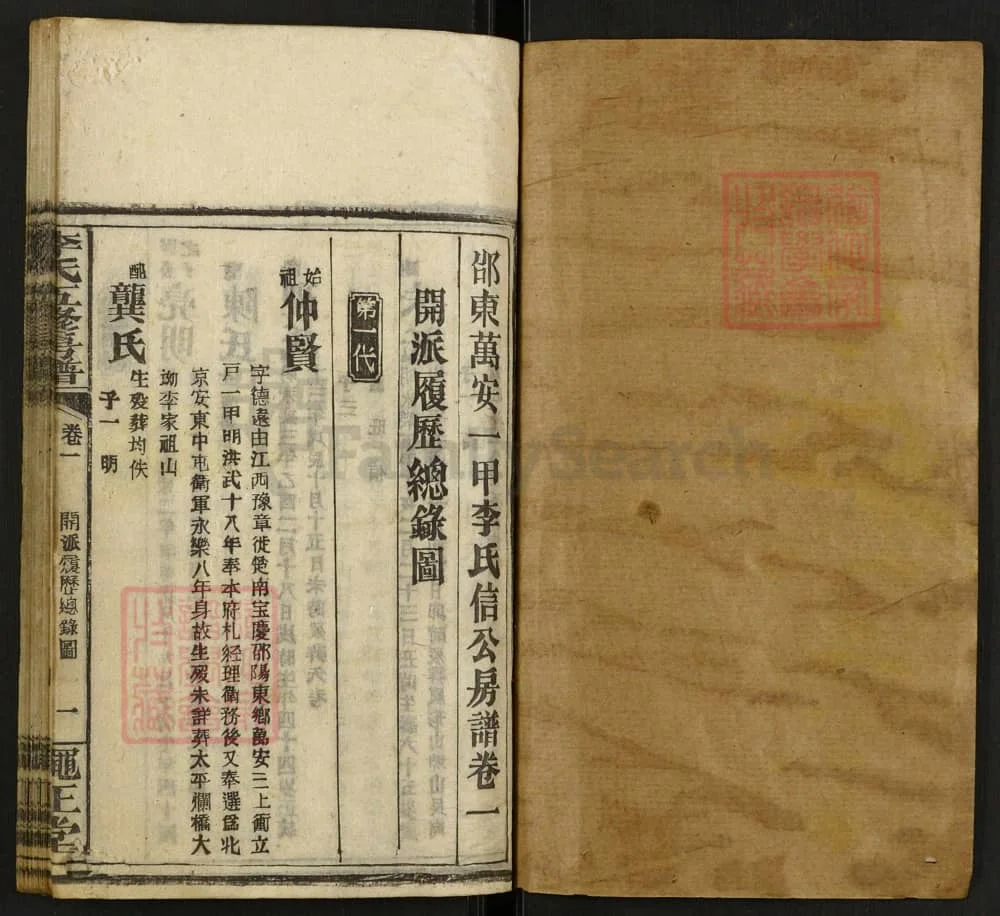 邵東萬安一甲李氏信公房譜卷一
開派履歷總錄圖
第一代
始祖仲賢
字德遠由江西豫章徙楚南宝慶邵陽東鄉萬安三上衝立
戸一甲明洪武十八年奉本府札経理衛務後又奉選爲北
京安東中屯衛軍永樂八年身故生殁未詳葬太平爛橋大
坳李家祖山
配龔氏
生殁葬均佚
子一 明
李氏五修房譜
卷一
開派履歷總錄圖
一
正堂
FamilySearch